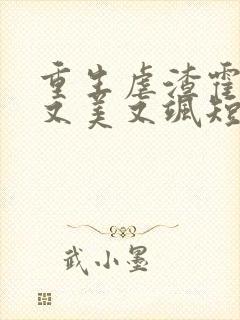 重生虐渣霍
又美又飒短
武小墨